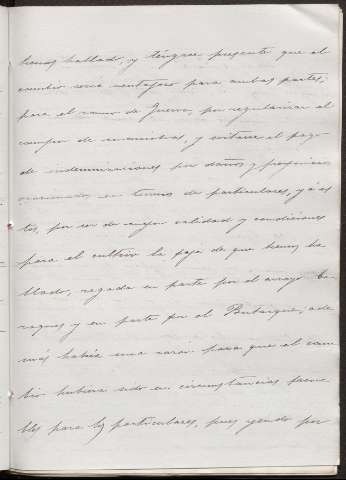 hemos hablado, y téngase presente que el
cambio sería ventajoso para ambas partes;
para el ramo de Guerra, por regularizar el
campo de maniobras, y evitarse el pago
de indemnizaciones por daños y perjuicios
ocasionados en terrenos de particulares, y á es
tos, por ser de mejor calidad y condiciones
para el cultivo la faja de que hemos ha
blado, regada en parte por el arroyo
y en parte por el Butarque; ade
más había una razón para que el cam
bio hubiera sido en circunstancias favora
bles para los particulares, pues yendo por